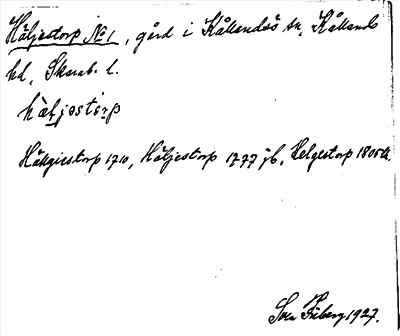 Häljestorp No 1, gård i Kållandsö sn, Kållands
hd, Skarab. l.
hä̀ljestərp
Hällgiestorp 1710, Häljestorp 1777 jb, Helgestorp 1805
Sven Friberg 1927.